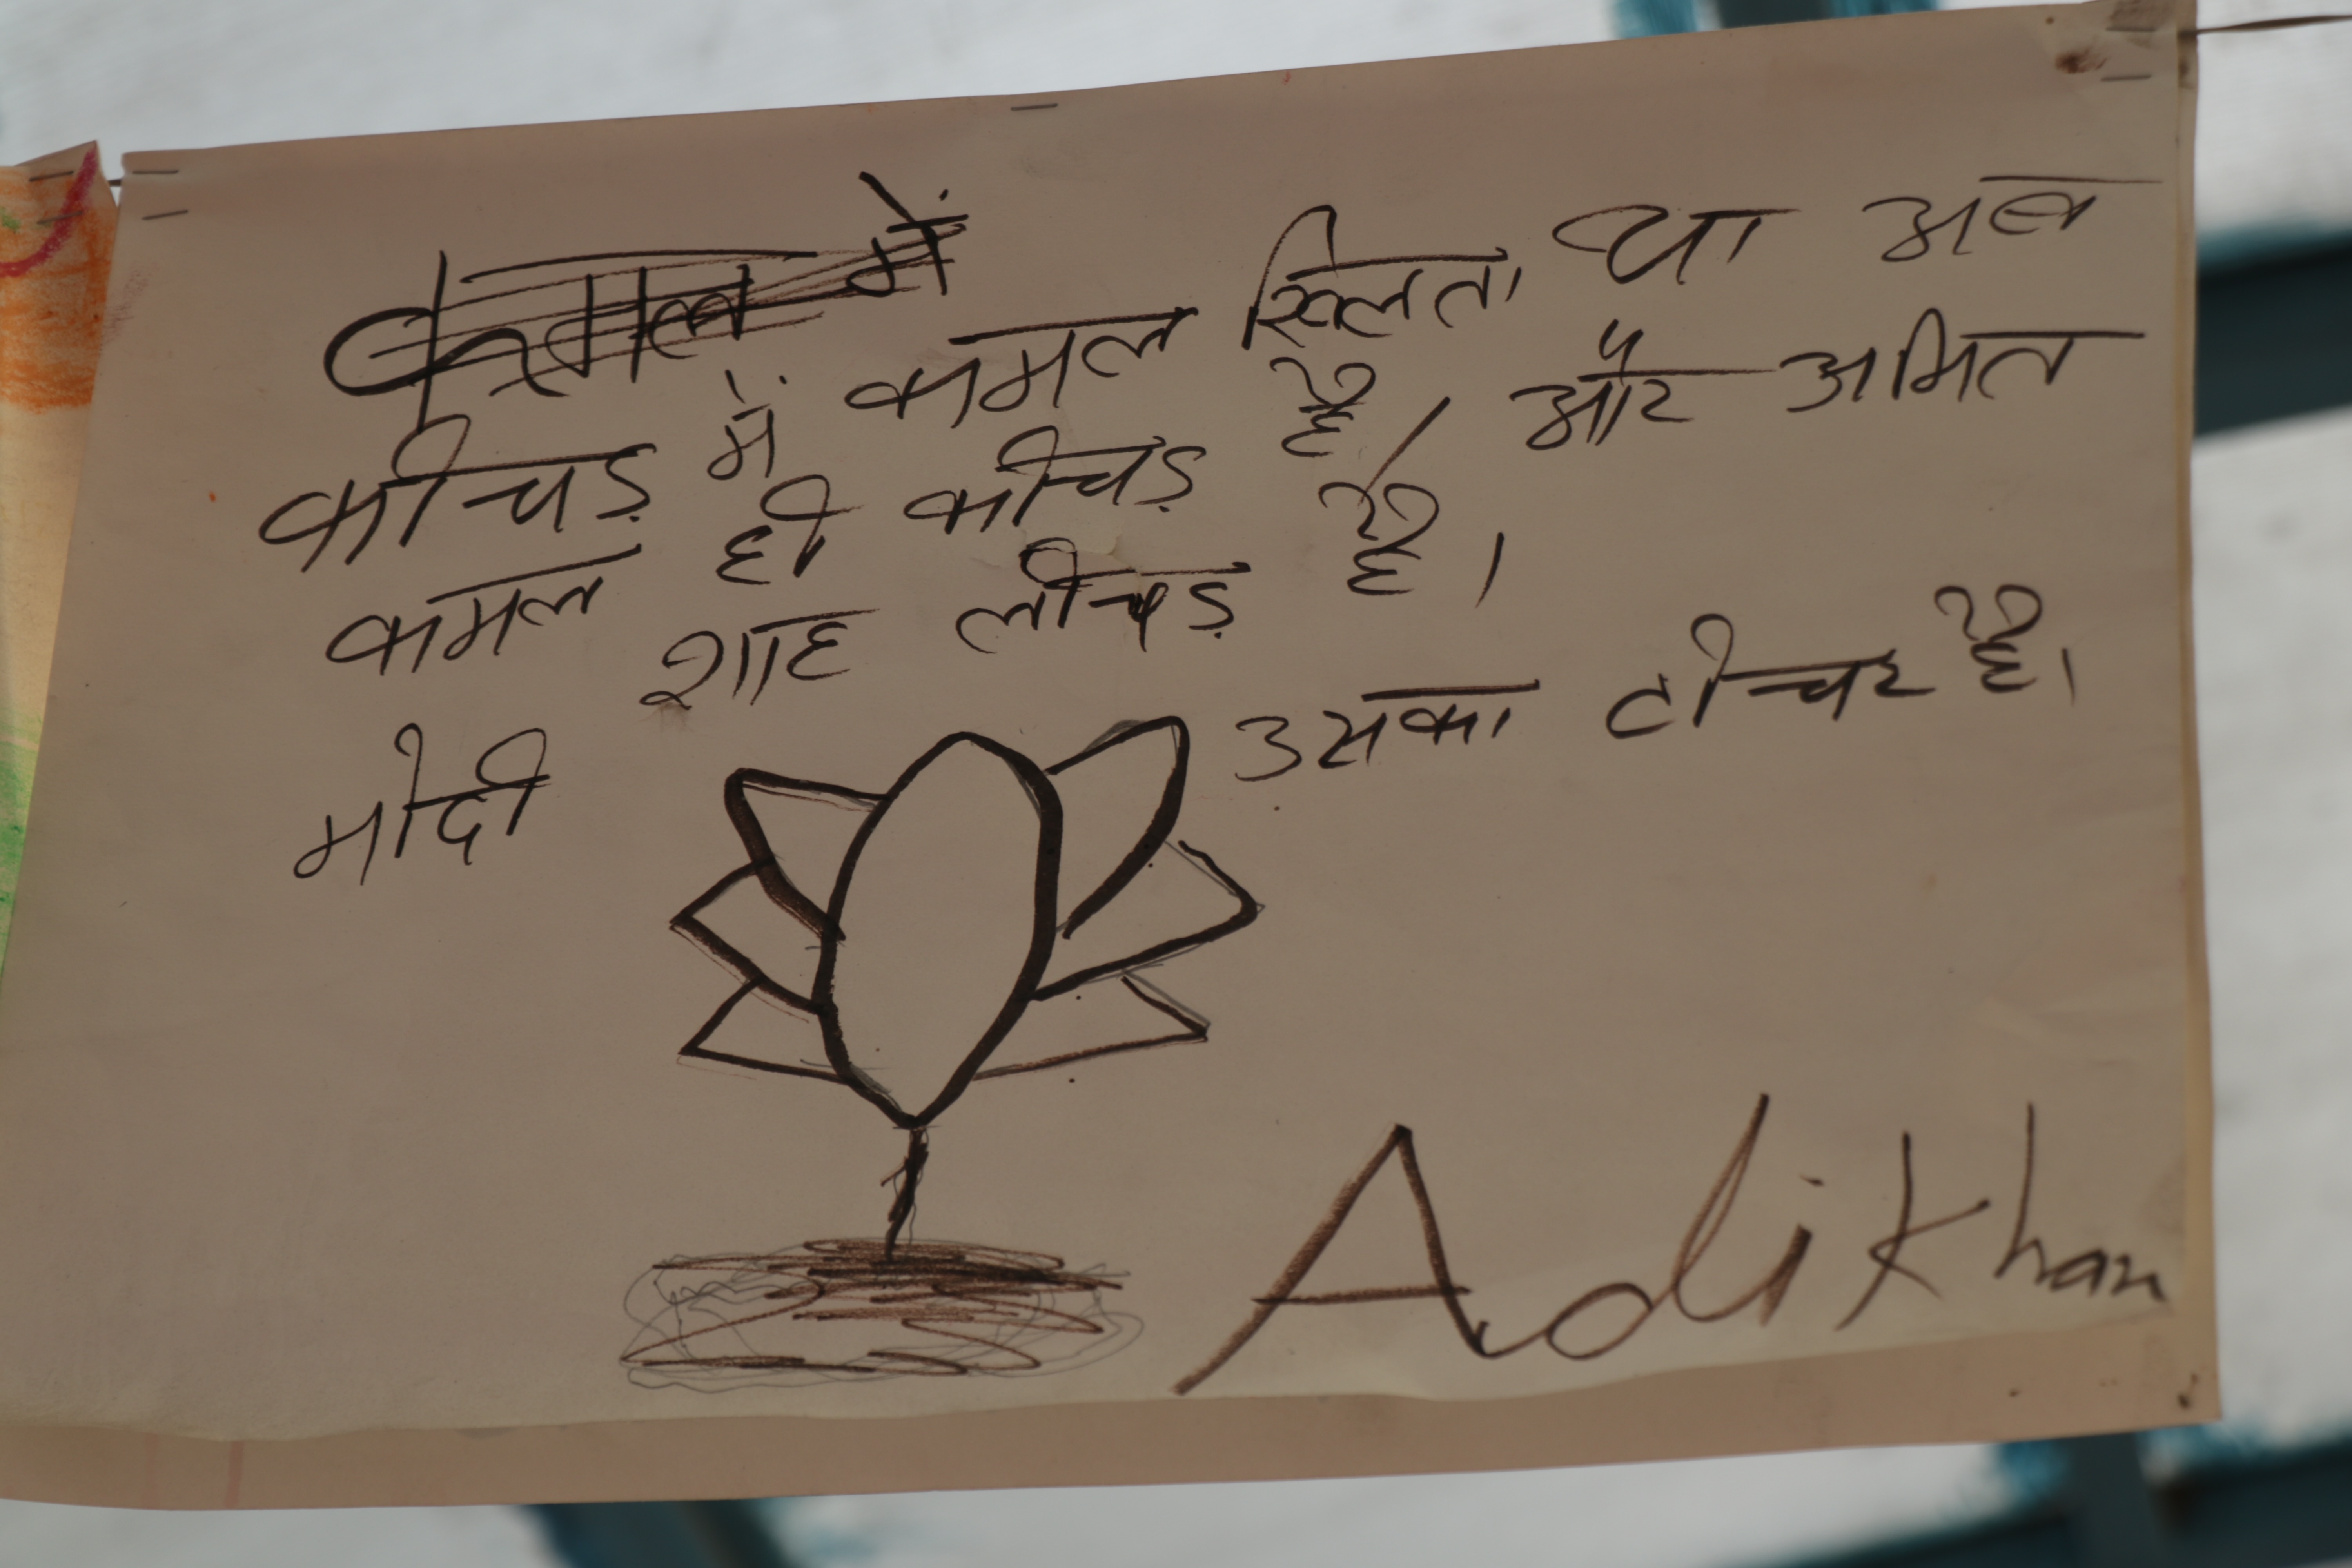 कमल में
कीचड़ में कमल खिलता था अब
कमल ही कीचड़ है। और अमित
शाह लीचड़ है।
मोदी उसका टीचर है।
Adi Khan